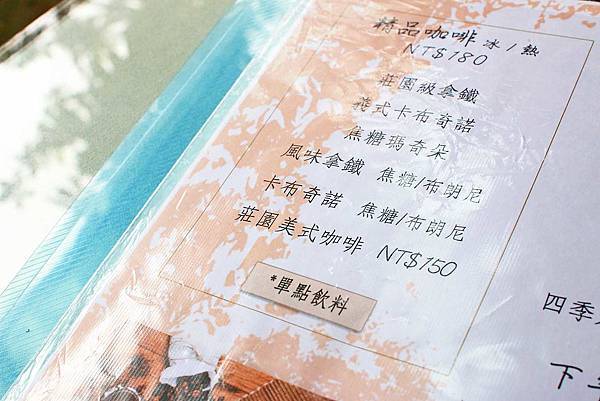 精品咖啡 冰/熱
NT$180
莊園級拿鐵
義式卡布奇諾
焦糖瑪奇朵
風味拿鐵 焦糖/布朗尼
卡布奇諾 焦糖/布朗尼
莊園美式咖啡 NT$150
*單點飲料
四季
下